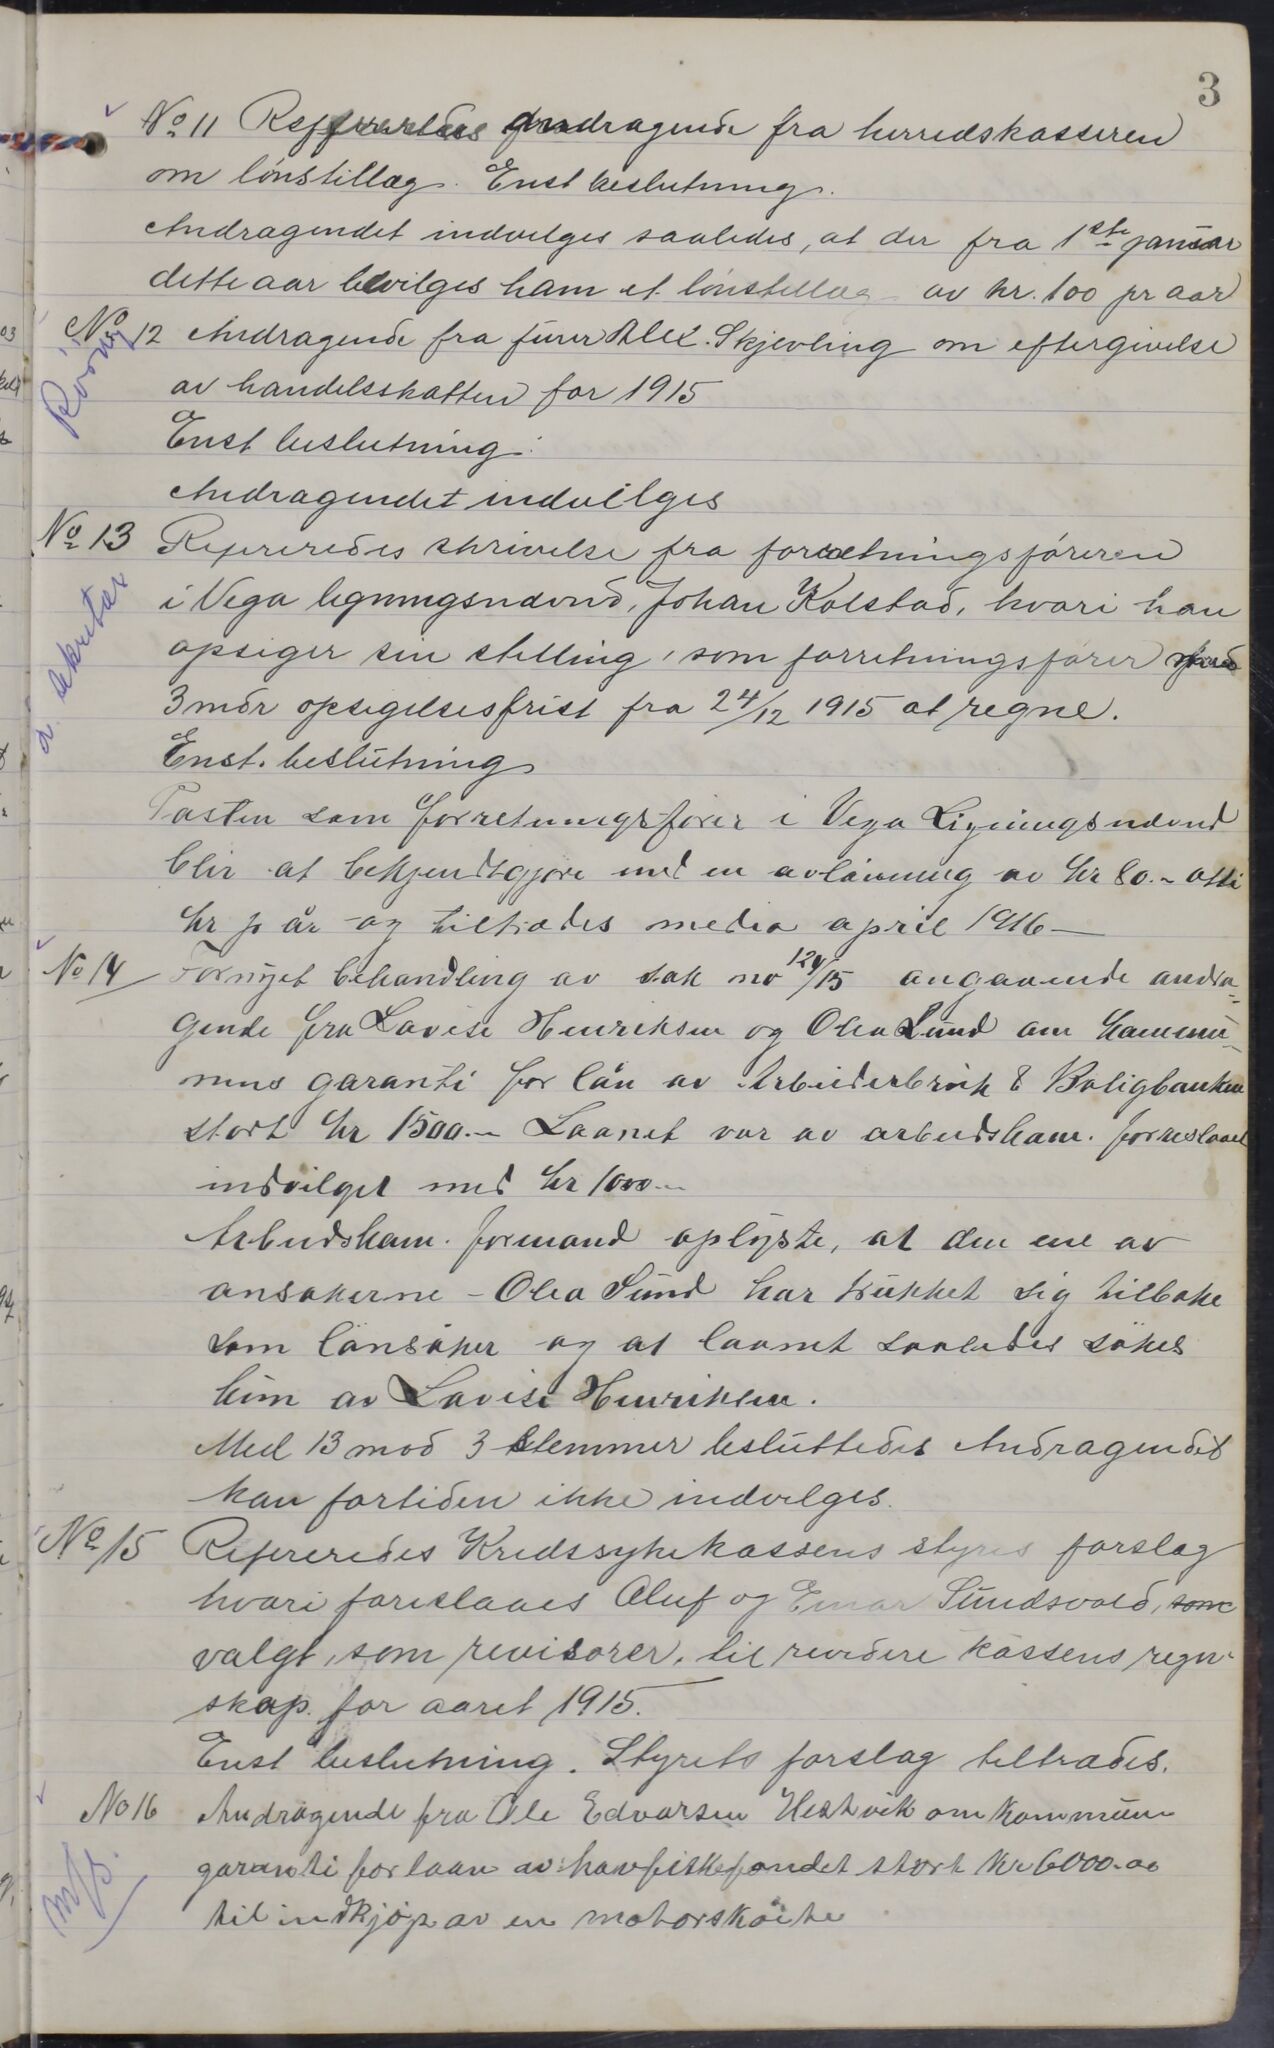 3
No 11 Reffereredes andragende fra herredskasseren
om lönstillæg. Enst beslutning.
Andragendet indvilges saaledes, at der fra 1ste januar
dette aar bevilges ham et lönstillæg av kr. 100 pr aar
No 12 Andragende fra Alex. Skjevling om eftergivelse
av handelsskatten for 1915
Enst beslutning:
Andragendet indvilges
No 13 Refereredes skrivelse fra forretningsföreren
i Vega ligningsnævnd, Johan Kolstad, hvori han
opsiger sin stilling, som forretningsförer med
3 mdr opsigelsesfrist fra 24/12 1915 at regne.
a. sekretær
Enst. beslutning
Posten som forretningsförer i Vega Ligningsnævnd
blir at bekjendtgjöre med en avlönning av kr 80.- otti
kr p år og tiltrædes medio april 1916 —
No 14 Fornyet behandling av sak no 124/15 angaaende andra-
gende fra Lovise Henriksen og Olea Sund om kommu-
nens garanti for lån av Arbeiderbruk & Boligbanken
stort kr 1500.- Laanet var av arbeidskom. foreslaaet
indvilget med kr 1000.-
Arbeidskom. formand oplyste, at den ene av
ansökerne - Olea Sund har trukket sig tilbake
som lånsöker og at laanet saaledes sökes
kun av Lovise Henriksen.
Med 13 mod 3 stemmer besluttedes Andragendet
kan fortiden ikke indvilges.
No 15 Refereredes Kredssykekassens styres forslag
hvori foreslaaes Oluf og Einar Sundsvold, som
valgt, som revisorer, til revidere kassens regn-
skap for aaret 1915.
Enst beslutning. Styrets forslag tiltrædes.
No 16 Andragende fra Ole Edvarsen Hestvik om kommune
garanti for laan av havfiskefondet stort kr 6000.00
til indkjöp av en motorsköite